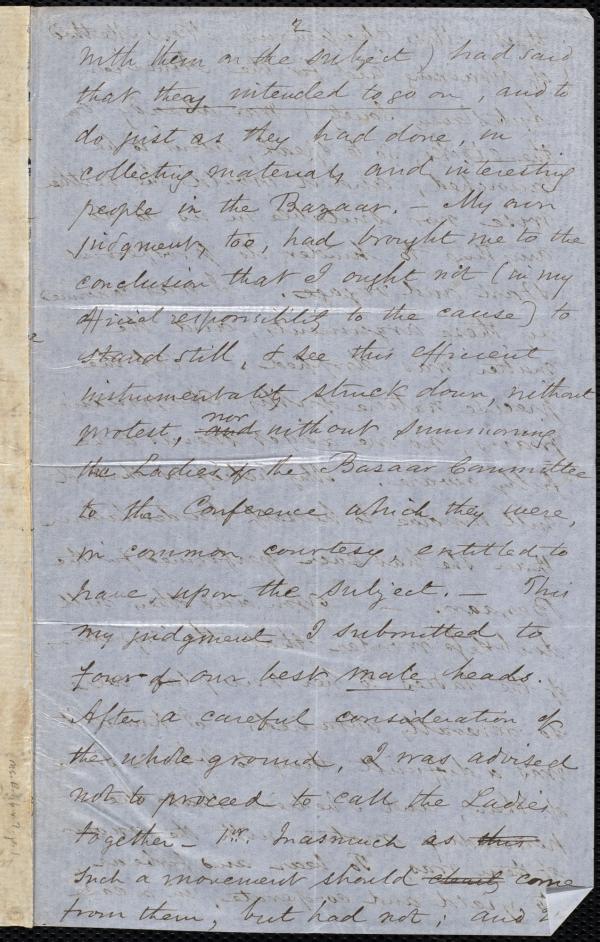 2
with them on the subject) had said
that they intended to go on, and to
do just as they had done, in
collecting materials and interesting
people in the Bazaar. – My own
judgment, too, had brought me to the
conclusion that I ought not (in my
official responsibility to the cause) to
stand still, & see this efficient
instrumentality struck down, without
protest, and nor without summoning
the Ladies of the Bazaar Committee
to the Conference which they were,
in common courtesy, entitled to
have upon the subject. – This
my judgment I submitted to
four of our best male heads.
After a careful consideration of
the whole ground, I was advised
not to proceed to call the Ladies
together – 1st. Inasmuch as this
such a movement should come
from them, but had not; and